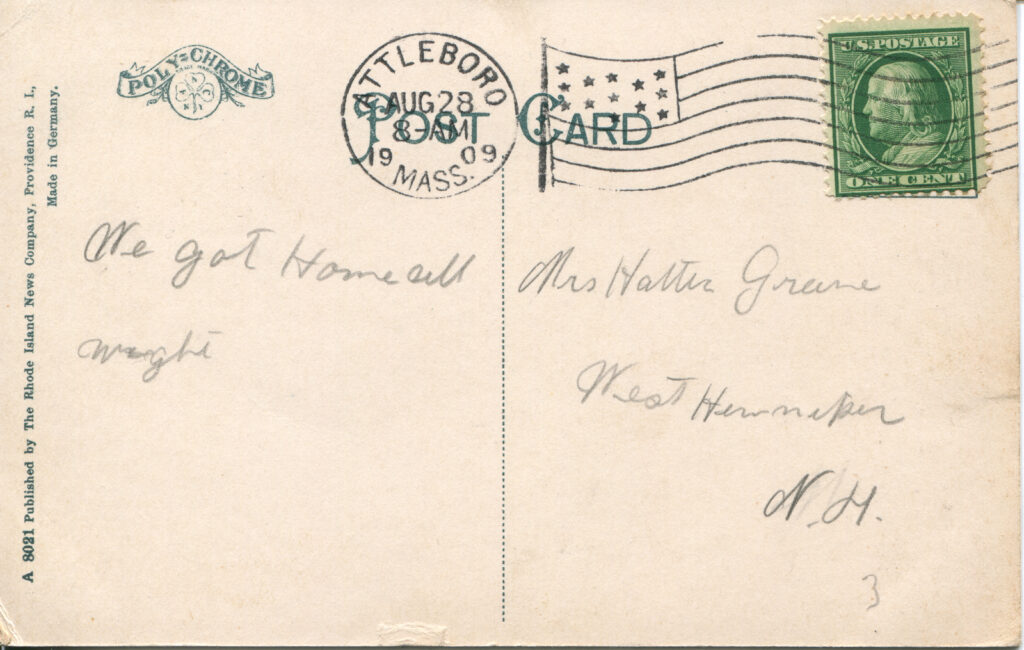 POLY-CHROME
POST CARD
ATTLEBORO
AUG 28
8-AM
1909
MASS.
U.S. POSTAGE
ONE CENT
A 8021 Published by The Rhode Island News Company, Providence R. I.,
Made in Germany.
We got Home all
wright
Mrs Hatter Greene
West Henniker
N.H.
3